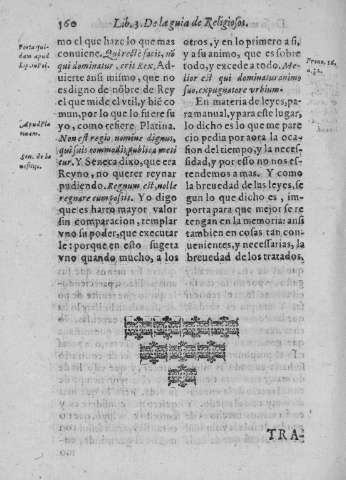 360 Lib. 3. De la guia de Religiosos.
mo el que haze lo que mas
conuiene. Qui recte facit, nō
qui dominatur, erit Rex, Ad-
uierte ansi mismo, que no
es digno de nōbre de Rey
el que mide el vtil, y biē co
mun, por lo que lo fuere su
yo, como refiere Platina.
Non est regio nomine dignus,
qui suis commodis publica meti
tur. Y Seneca dixo, que era
Reyno, no querer reynar
pudiendo. Regnum est, nolle
regnare cum possis. Yo digo
que es harto mayor valor
sin comparacion, templar
vno su poder, que executar
le: porque en esto sugeta
vno quando mucho, a los
otros, y en lo primero a si,
y a su animo, que es sobre
todo, y excede a todo. Me-
lior est qui dominatur animo
suo, expugnatore vrbium.
En materia de leyes, pa-
ra manual, y para este lugar,
lo dicho es lo que me pare
cio pedia por aora la oca-
sion del tiempo, y la neces-
sidad, y por esso no nos es-
tendemos a mas. Y como
la breuedad de las leyes, se
gun lo que dicho es, im-
porta para que mejor se re
tengan en la memoria: ansi
tambien en cosas tan con-
uenientes, y necessarias, la
breuedad de los tratados,
Porta qui-
dam apud
Apud Pla-
tinam.
Sen. de la
Prou. 16.
TRA-